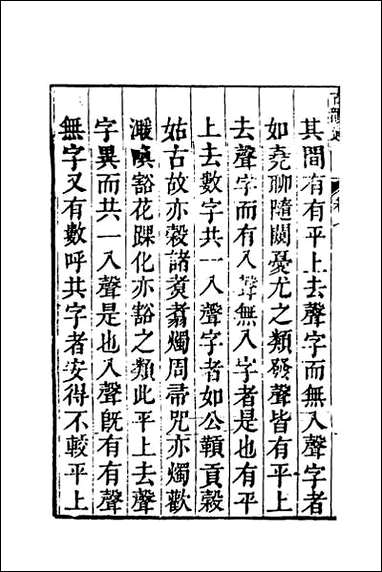 其間有有平上去聲字而無入聲字者
如堯聊隨闕憂尤之類發聲皆有平上
去聲字而有入聲無入字者是也有平
上去數字共一入聲字者如公顜貢穀
姑古故亦穀諸煑翥燭周帚咒亦燭歡
豁花踝化亦豁之類此平上去聲
字異而共一入聲是也入聲旣有有聲
無字又有數呼共字者安得不較平上